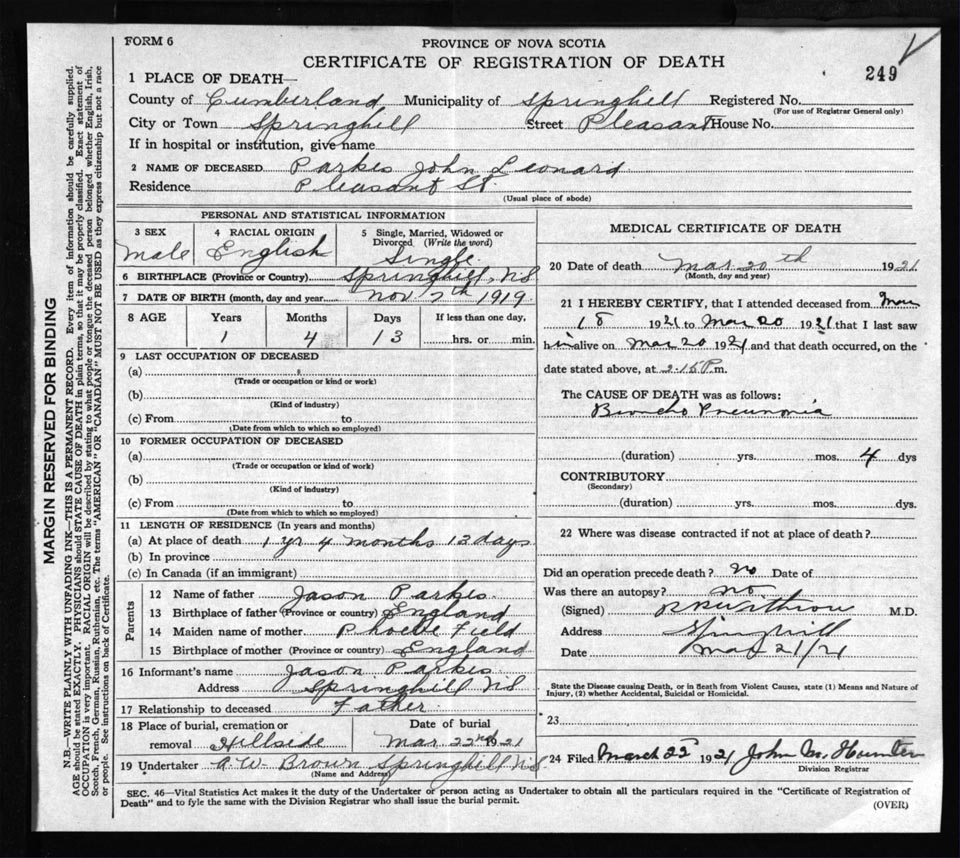 FORM 6
PROVINCE OF NOVA SCOTIA
CERTIFICATE OF REGISTRATION OF DEATH
249
1 PLACE OF DEATH—
County of Cumberland Municipality of Springhill Registered No.
(For use of Registrar General only)
City or Town Springhill Street Pleasant House No.
If in hospital or institution, give name
2 NAME OF DECEASED Parkes John Leonard
Residence Pleasant St.
(Usual place of abode)
PERSONAL AND STATISTICAL INFORMATION
3 SEX
Male
4 RACIAL ORIGIN
English
5 Single, Married, Widowed or
Divorced (Write the word)
Single
6 BIRTHPLACE (Province or Country) Springhill, NS
7 DATE OF BIRTH (month, day and year Nov 7th 1919
8 AGE Years Months Days If less than one day,
1 4 13 hrs. or min.
9 LAST OCCUPATION OF DECEASED
(a)
(Trade or occupation or kind or work)
(b)
(Kind of industry)
(c) From to
(Date from which to which so employed)
10 FORMER OCCUPATION OF DECEASED
(a)
(Trade or occupation or kind of work)
(b)
(Kind of industry)
(c) From to
(Date from which to which so employed)
11 LENGTH OF RESIDENCE (In years and months)
(a) At place of death 1 yr 4 months 13 days
(b) In province
(c) In Canada (if an immigrant)
Parents
12 Name of father Jason Parkes
13 Birthplace of father (Province or country) England
14 Maiden name of mother Phoebe Field
15 Birthplace of mother (Province or country) England
16 Informant's name Jason Parkes
Address Springhill NS
17 Relationship to deceased Father
18 Place of burial, cremation or Date of burial
removal Hillside Mar 22nd 1921
19 Undertaker A.W. Brown Springhill NS
(Name and Address)
MEDICAL CERTIFICATE OF DEATH
20 Date of death Mar 20th 1921
(Month, day and year)
21 I HEREBY CERTIFY, that I attended deceased from Mar
18 1921 to Mar 20 1921 that I last saw
him alive on Mar 20 1921 and that death occurred, on the
date stated above, at 2.15 P.m.
The CAUSE OF DEATH was as follows:
Broncho Pneumonia
(duration) yrs. mos. 4 dys
CONTRIBUTORY
(Secondary)
(duration) yrs. mos. dys.
22 Where was disease contracted if not at place of death?
Did an operation precede death? no Date of
Was there an autopsy? no
(Signed) M.D.
Address Springhill
Date Mar 21/21
State the Disease causing Death, or in death from Violent Causes, state (1) Means and Nature of
Injury, (2) whether Accidental, Suicidal or Homicidal.
23
24 Filed March 22 1921 John M. Hunter
Division Registrar
SEC. 46—Vital Statistics Act makes it the duty of the Undertaker or person acting as Undertaker to obtain all the particulars required in the "Certificate of Registration of
Death" and to fyle the same with the Division Registrar who shall issue the burial permit.
(OVER)
MARGIN RESERVED FOR BINDING
N.B.—WRITE PLAINLY WITH UNFADING INK—THIS IS A PERMANENT RECORD. Every item of information should be carefully supplied.
AGE should be stated EXACTLY. PHYSICIANS should STATE CAUSE OF DEATH in plain terms, so that it may be properly classified. Exact statement of
OCCUPATION is very important. RACIAL ORIGIN will be described by stating to what people or tongue the deceased person belonged whether English, Irish,
Scotch, French, German, Russian, Ruthenian, etc. The terms "AMERICAN" OR "CANADIAN" MUST NOT BE USED as they express citizenship but not a race
or people. See instructions on back of Certificate.